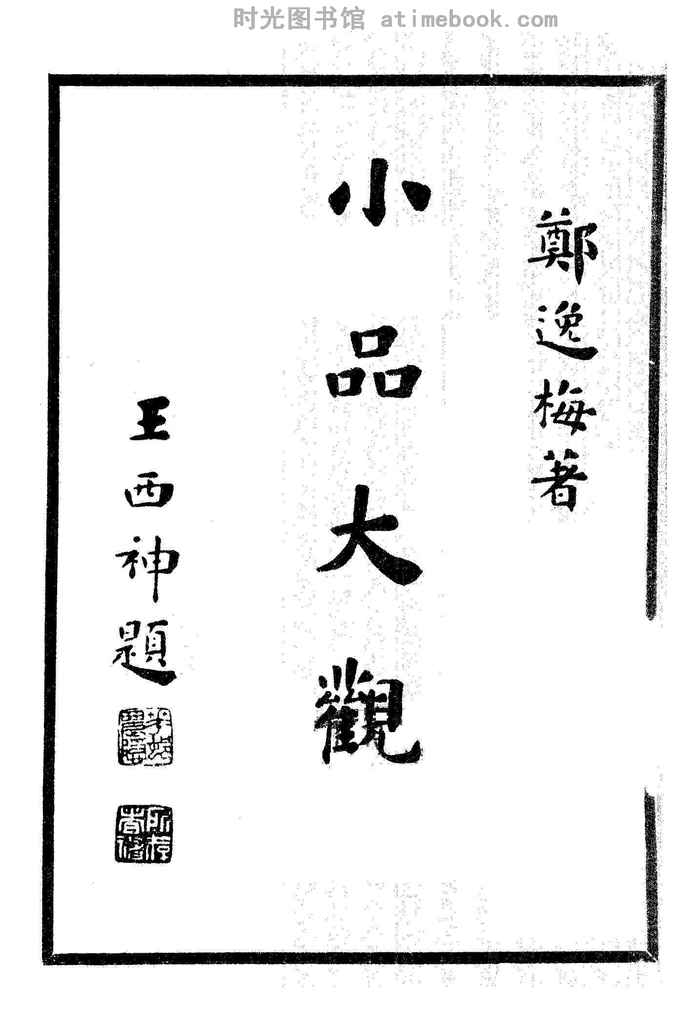 时光图书馆 atimebook.com
鄭逸梅著
小品大觀
王西神題